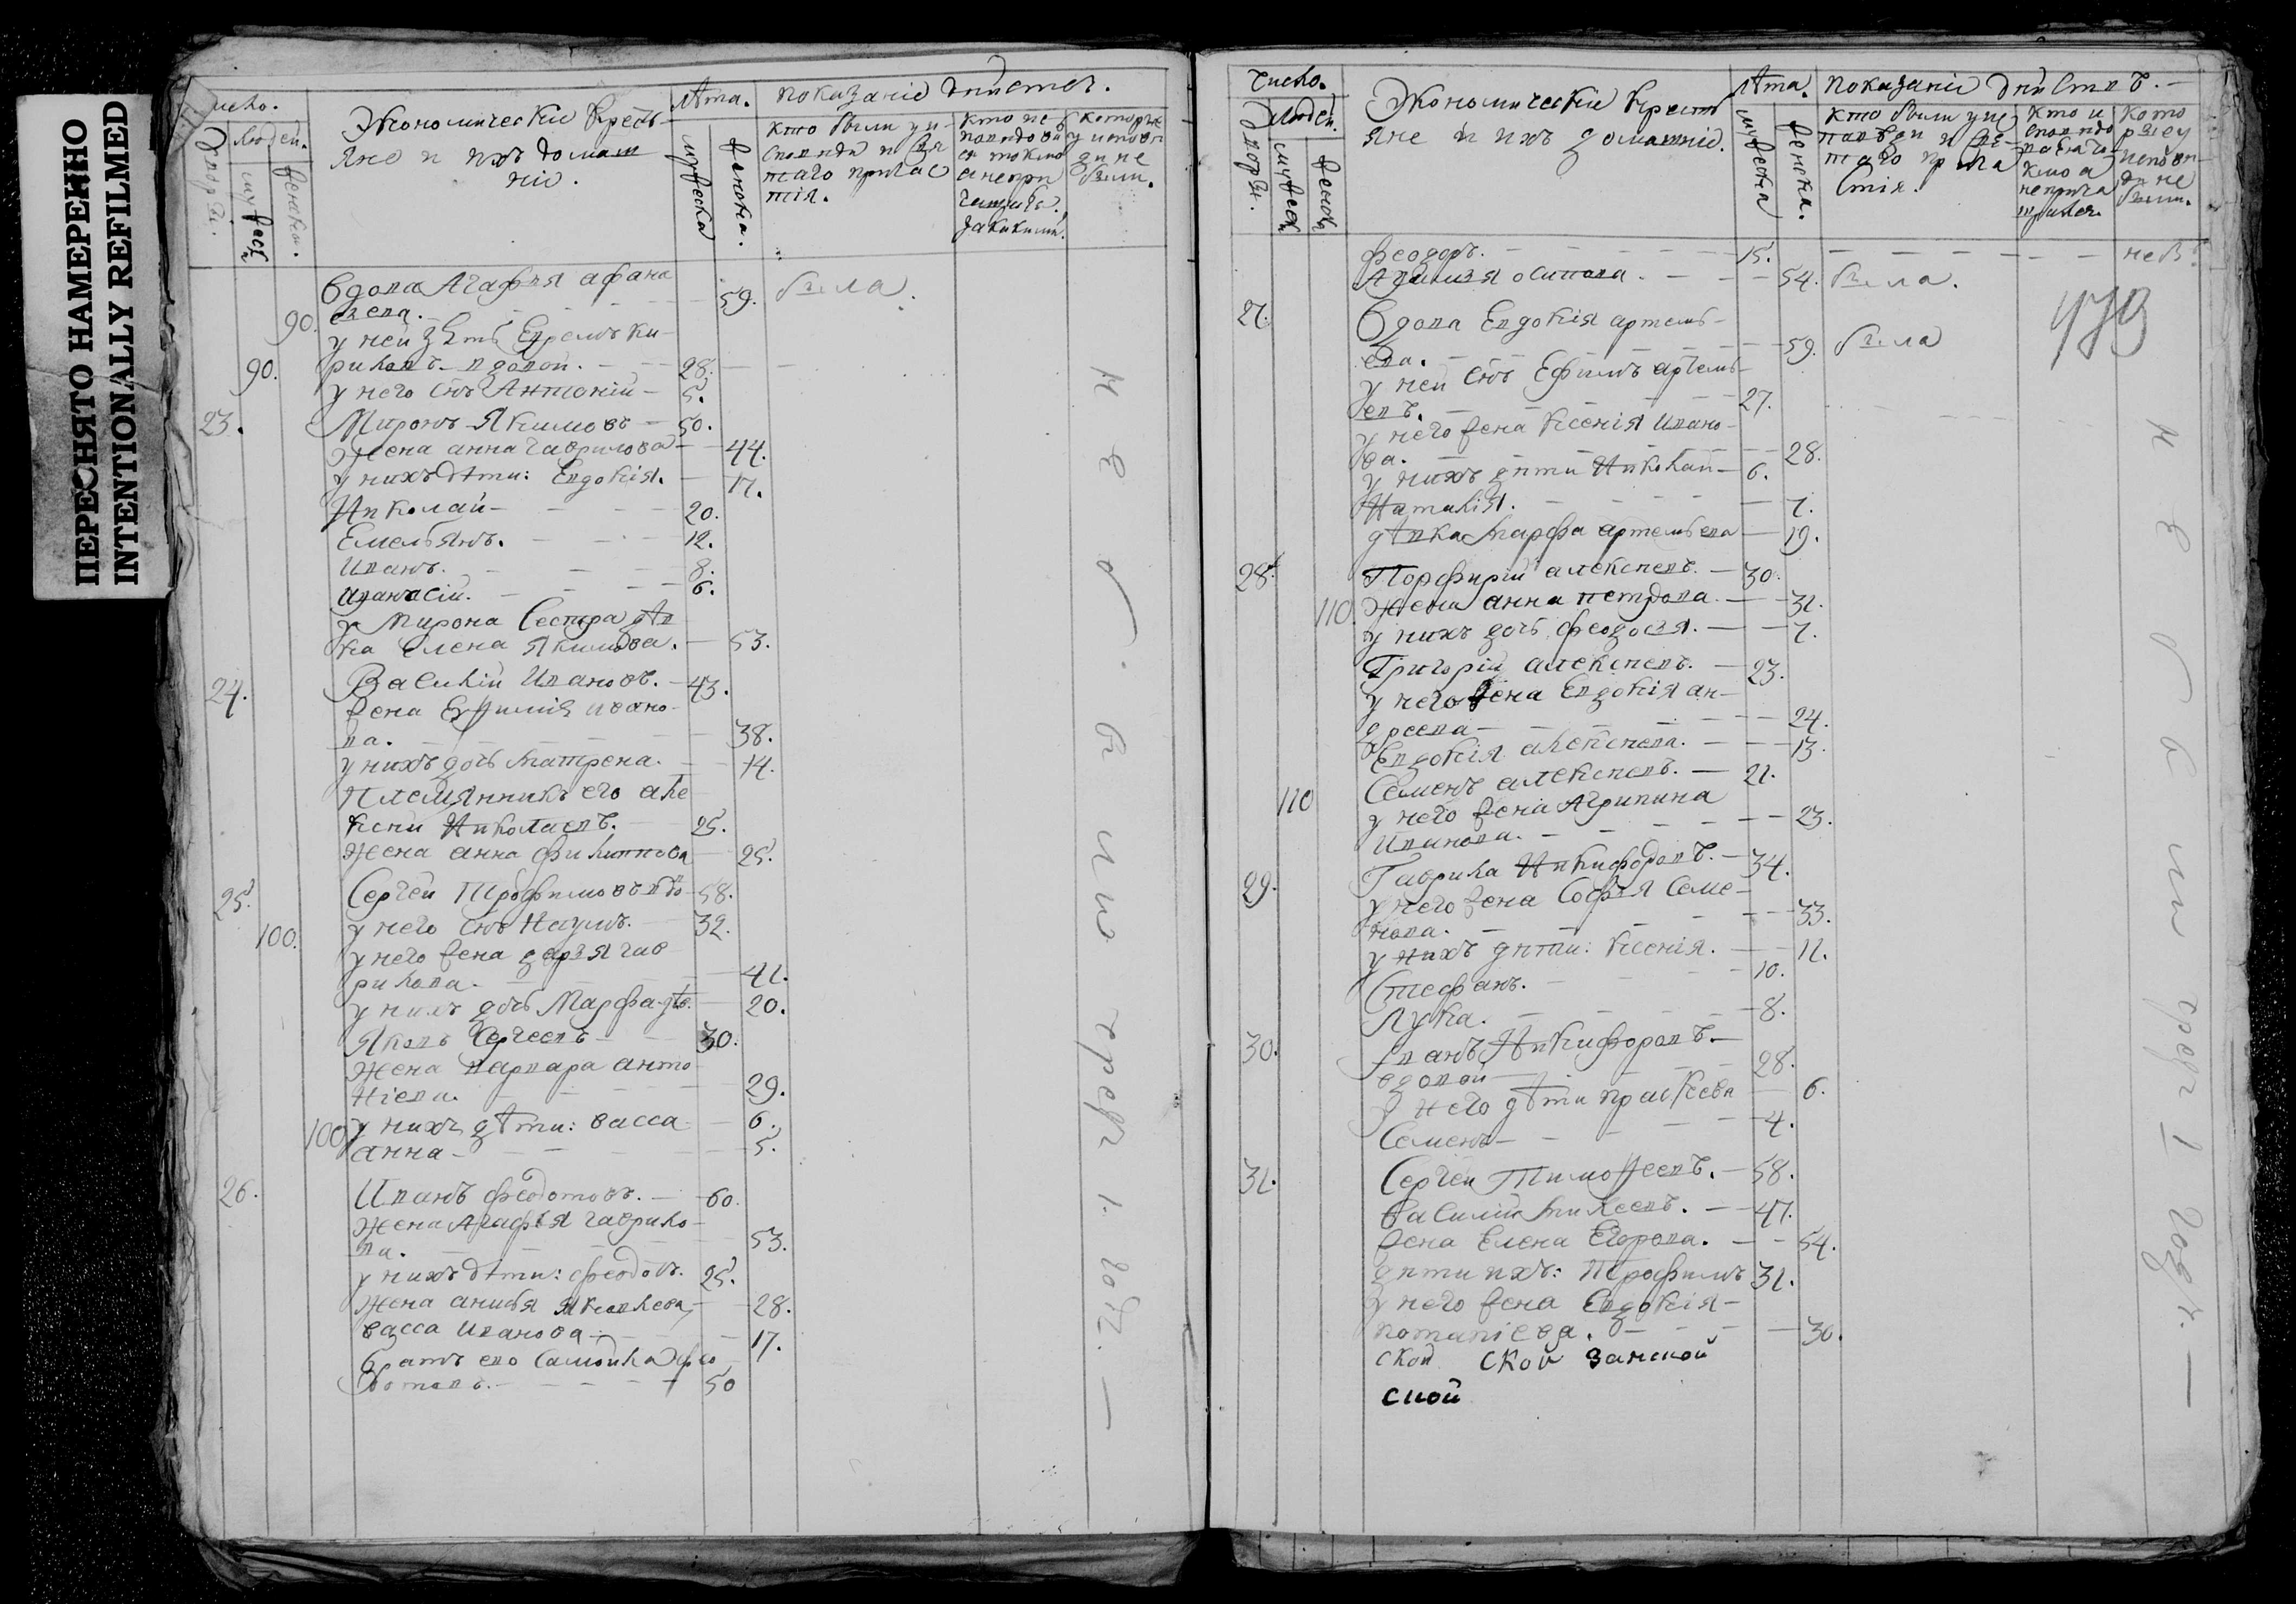 ПЕРЕСНЯТО НАМЕРЕННО
INTENTIONALLY REFILMED
число.
людей.
дворы.
мужеск
женски.
Экономические кресть
яне и ихъ домаш
ніе.
лѣта.
мужеска
женска.
показаніе дѣйствъ.
кто были у ис
повѣди и свя
таго прича
тія.
которые
у исповѣ
ди не
были.
90.
вдова Агафья афана
сьева. 59. была.
90.
у ней зять Ефремъ ки
риловъ вдовой. 28.
у него снъ Антоній 5.
23. Миронъ Якимовъ 50.
Жена анна гаврилова 44.
у нихъ дѣти: Евдокія. 17.
Николай 20.
Емельянъ. 12.
Иванъ. 8.
афанасій. 6.
у Мирона Сестра дѣв
ка Елена Якимова. 53.
24. Василій Ивановъ. 43.
жена Евфимія ивано
ва. 38.
у нихъ дочь Матрена. 14.
Племянникъ его але
ксѣй Николаевъ. 25.
Жена анна филиппова 25.
25. Сергѣй Трофимовъ вдо 58.
100. у него снъ Наумъ. 32.
у него жена дарья гав
рилова. 41.
у нихъ дочь Марфа дѣв. 20.
Яковъ Сергеевъ 30.
Жена варвара анто
ніева. 29.
100 у нихъ дѣти: васса 6.
анна 5.
26. Иванъ Федотовъ. 60.
Жена Агафья гаврило
ва. 53.
у нихъ дѣти: Федотъ. 25.
Жена анисья Яковлева 28.
васса Иванова 17.
братъ его Самойла Фео
дотовъ. 50
не были чрезъ 1. годъ.
число.
людей.
дворы.
мужеск
женск
Экономическіе кресть
яне и ихъ домашніе.
лѣта.
мужеска
женска.
показаніе дѣйствъ.
кто были у ис
повѣди и свя
таго прича
стія.
кото
рые у
исповѣ
ди не
были.
Феодоръ. 15. не б.
Осипова. 54. была.
27. Вдова Евдокія артемь
ева. 59. была
у ней снъ Ефимъ артемь
евъ. 27.
у него жена Ксенія ивано
ва. 28.
у нихъ дѣти Николай 6.
Наталія. 7.
дѣвка Марфа артемьева 19.
28. Порфирій алексѣевъ. 30.
110. Жена анна петрова. 31.
у нихъ дочь Феодосья. 7.
Григорій алексѣевъ. 23.
у него жена Евдокія ан
дреева 24.
Евдокія алексѣева. 13.
Семенъ алексѣевъ. 21.
110 у него жена Агрипина
Иванова. 23.
29. Гаврила Никифоровъ. 34.
у него жена Софья Семе
нова. 33.
у нихъ дѣти: Ксенія. 11.
Стефанъ. 10.
Лука. 8.
30. Иванъ Никифоровъ.
вдовой 28.
у него дѣти прасковья 6.
Семенъ 4.
31. Сергѣй Тимофеевъ. 58.
василій Михеевъ. 47.
жена Елена Егорова. 54.
дѣти ихъ: Трофимъ 31.
у него жена Евдокія
потапіева. 30.
ской ской занской
ской
не были чрезъ 1 годъ.